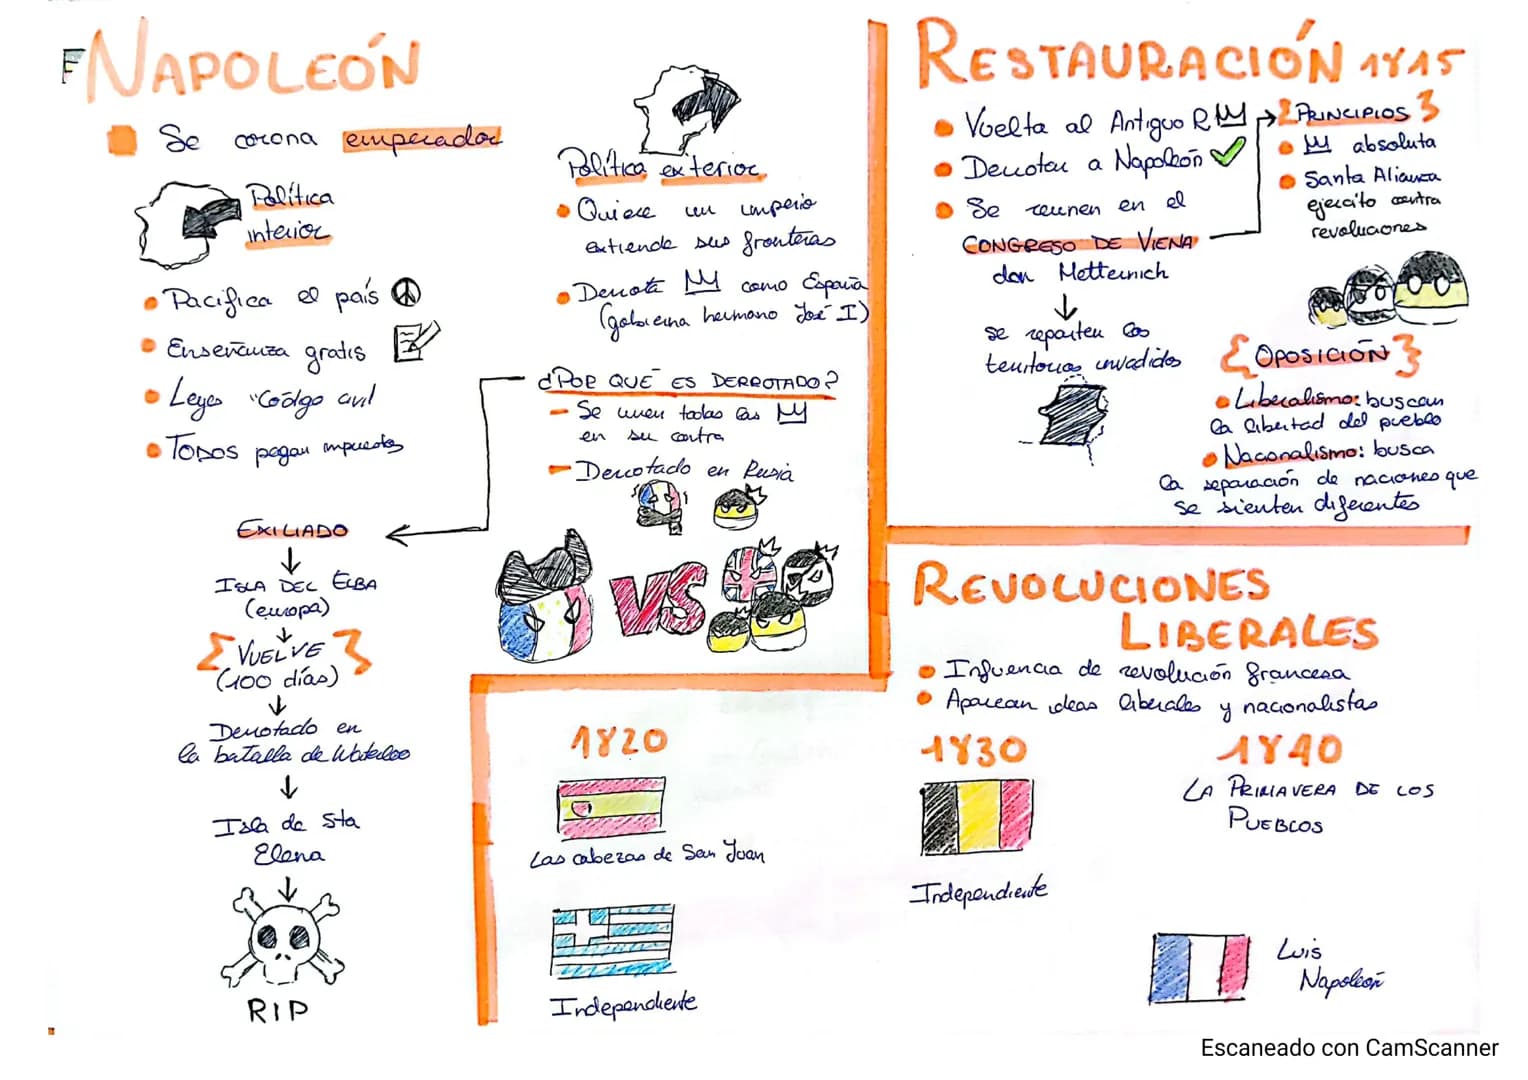 NAPOLEÓN
Se corona emperador
Política
interior
Pacifica el país
Enseñanza gratis
Leyes "Código civil
TODOS pagan impuestos
Política exterior
Quiere un imperio
extiende sus fronteras
Derrota como España
(gobierna hermano José I)
¿POR QUÉ ES DERROTADO?
Se unen todas las
en su contra
Derrotado en Rusia
VS
EXILIADO
ISLA DEL ELBA
(europa)
VUELVE
(100 días)
Derrotado en
la batalla de Waterloo
Isla de Sta
Elena
RIP
RESTAURACIÓN 1815
Vuelta al Antiguo R
Derroten a Napoleón
Se reunen en el
CONGRESO DE VIENA
don Metternich
se reparten los
territorios invadidos
PRINCIPIOS
absoluta
Santa Alianza
ejercito contra
revoluciones
OPOSICIÓN
Liberalismo: buscan
la libertad del pueblo
Nacionalismo: busca
la separación de naciones que
se sienten diferentes
REVOLUCIONES
LIBERALES
Influencia de revolución francesa
Aparecen ideas liberales y nacionalistas
1820
Las cabezas de San Juan
Independiente
1830
Independiente
1840
LA PRIMAVERA DE LOS
PUEBLOS
Luis
Napoleón
Escaneado con CamScanner